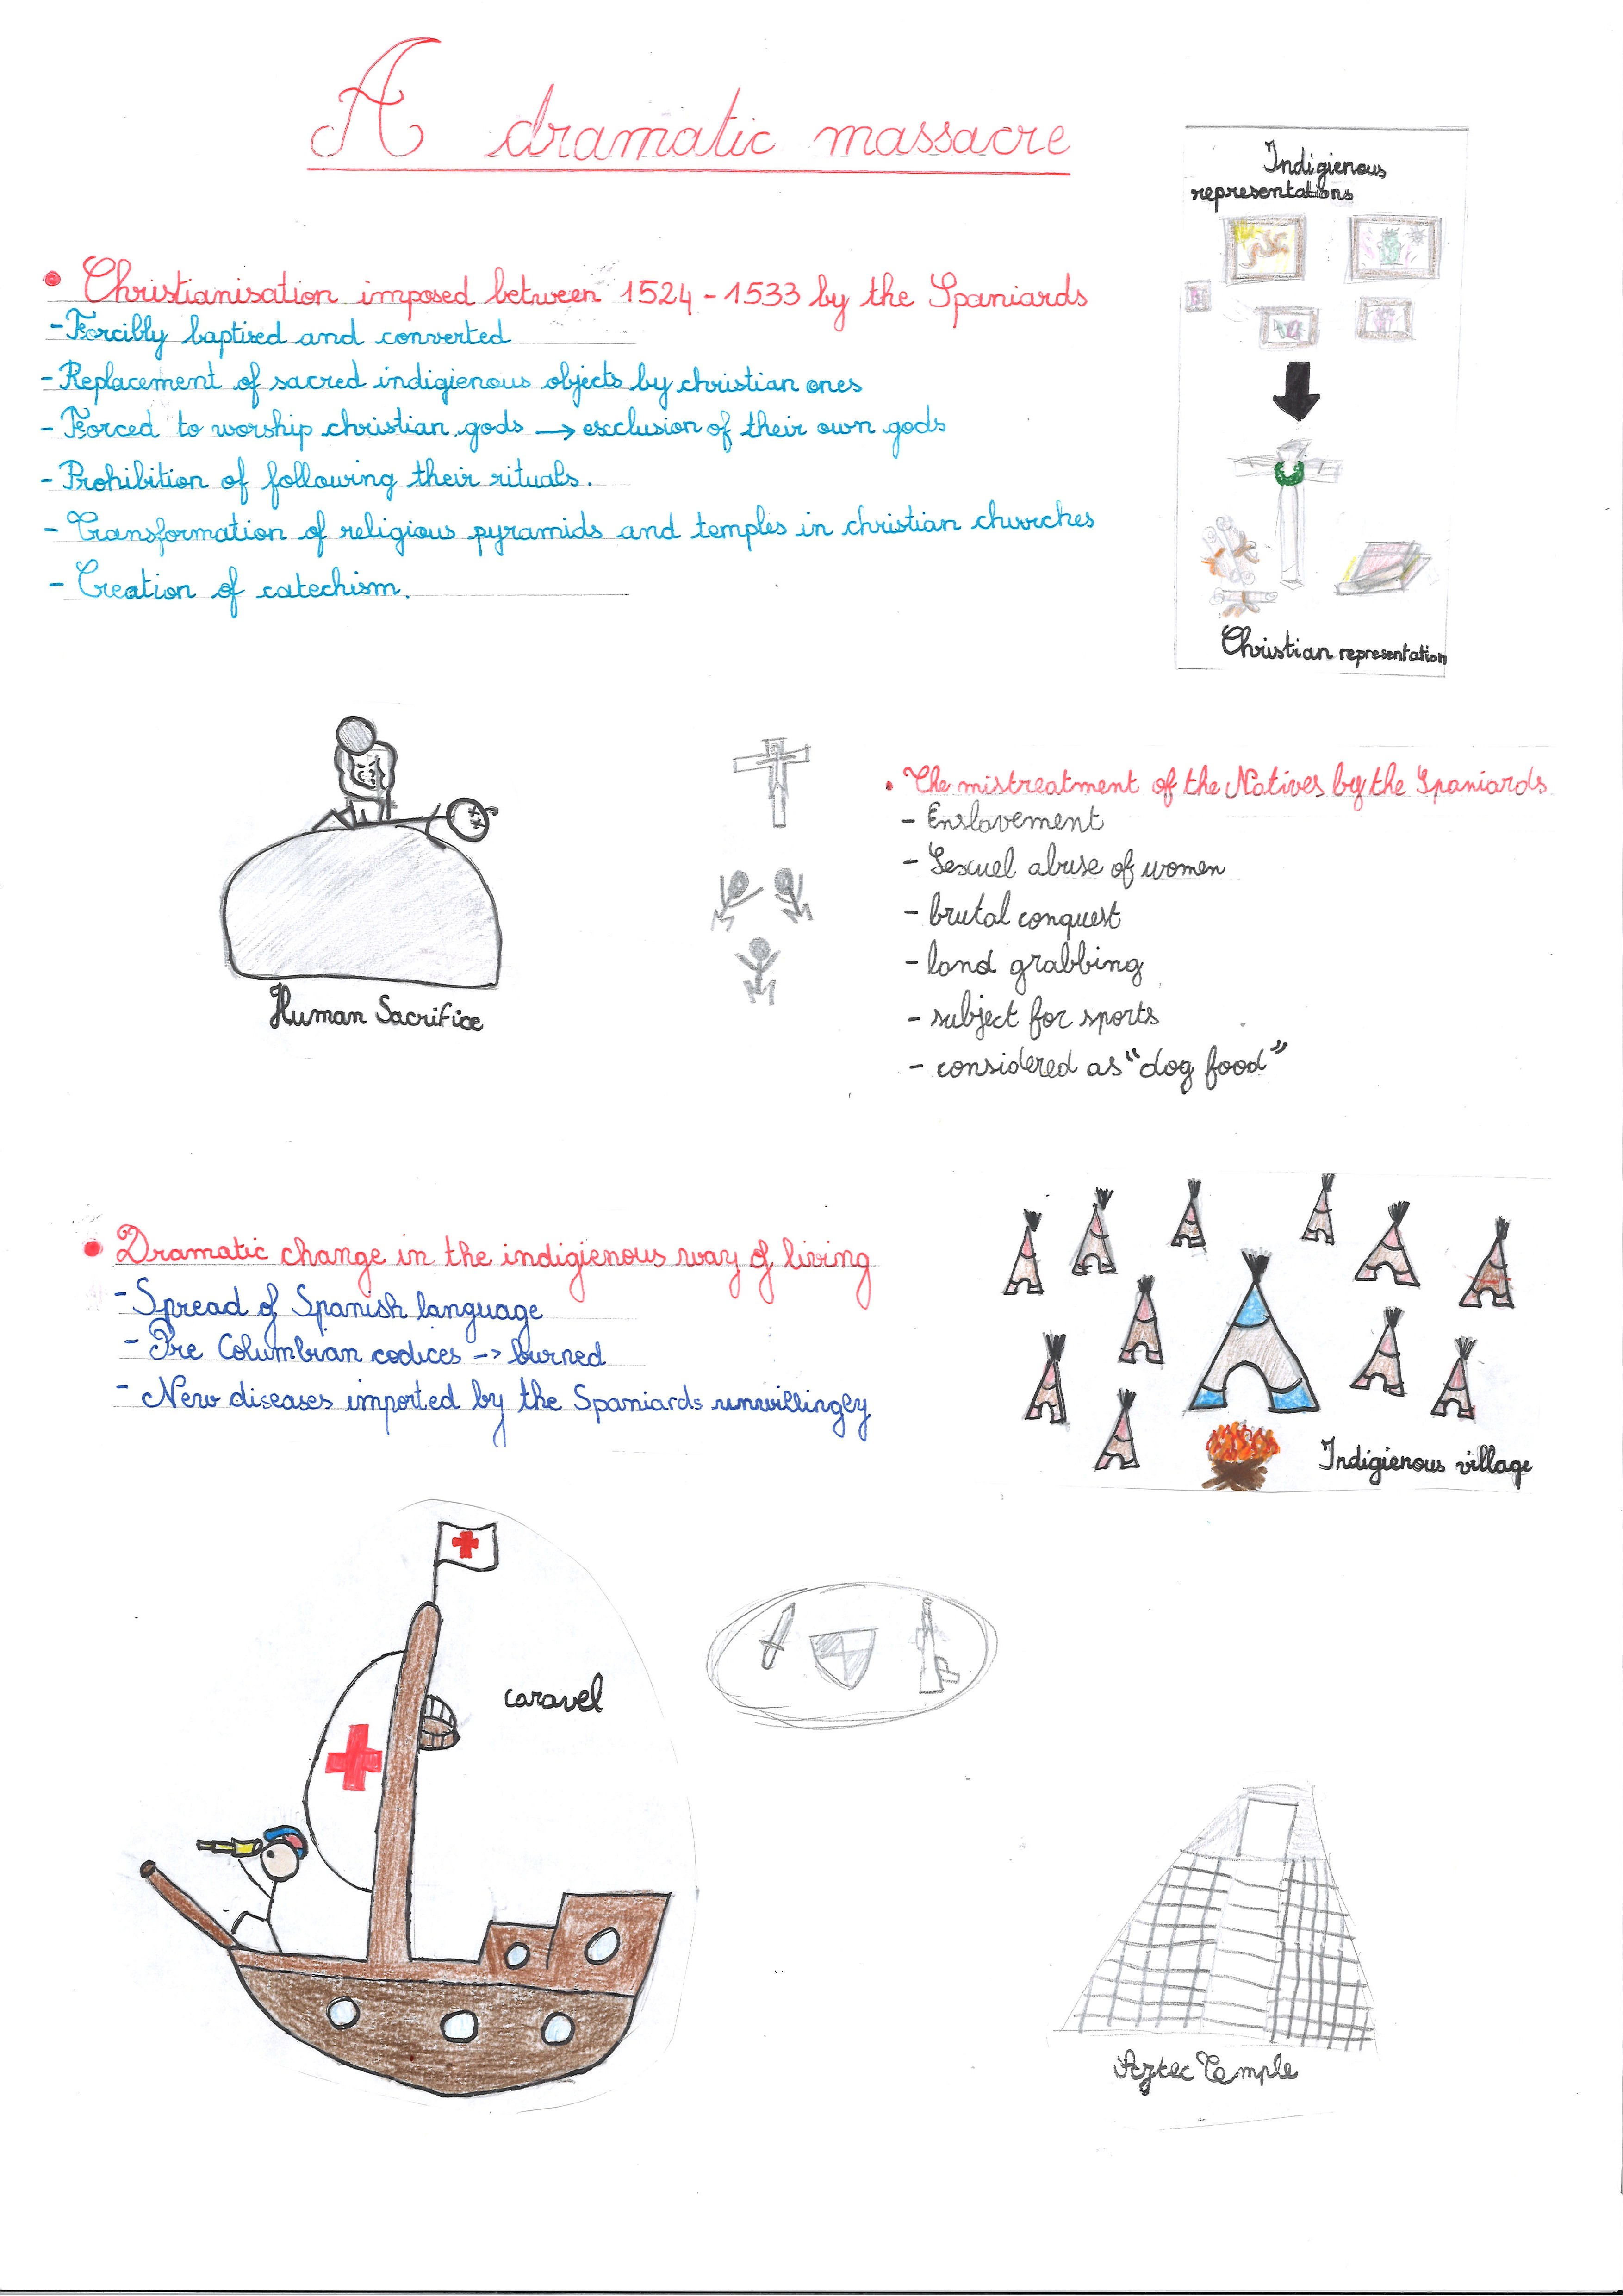 A dramatic massacre
Indigienous
representations
• Christianisation imposed between 1524 - 1533 by the Spaniards
- Forcibly baptised and converted
- Replacement of sacred indigienous objects by christian ones
- Forced to worship christian gods → exclusion of their own gods
- Prohibition of following their rituals.
- Transformation of religious pyramids and temples in christian churches
- Creation of catechism.
Christian representation
• The mistreatment of the Natives by the Spaniards
- Enslavement
- Sexuel abuse of women
- brutal conquest
- land grabbing
- subject for sports
- considered as "dog food"
Human Sacrifice
• Dramatic change in the indigienous way of living
- Spread of Spanish language
- Pre Columbian codices -> burned
- New diseases imported by the Spaniards unwillingly
Indigienous village
caravel
Aztec Temple